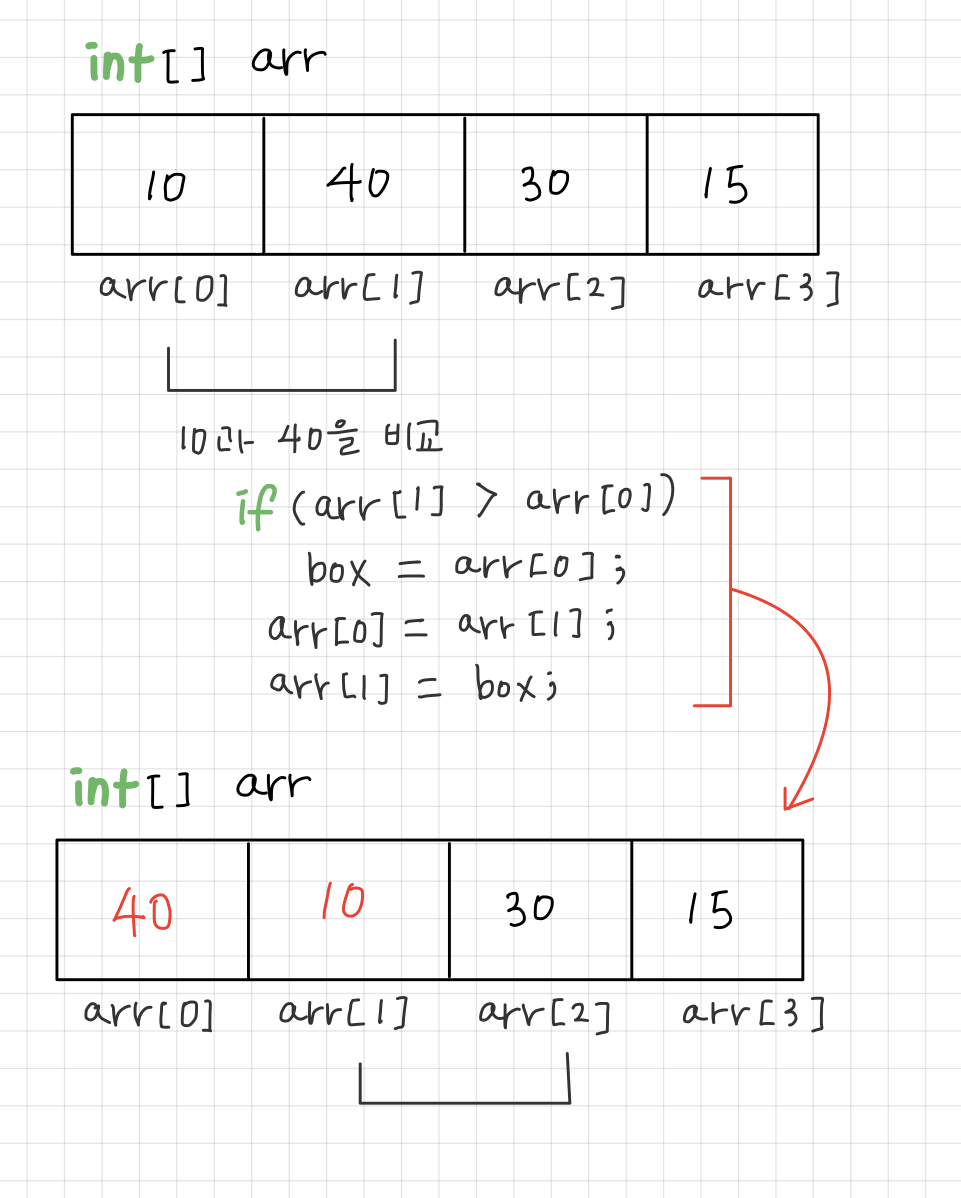 int[] arr
10 40 30 15
arr[0] arr[1] arr[2] arr[3]
10과 40을 비교
if(arr[1] > arr[0])
box = arr[0];
arr[0] = arr[1];
arr[1] = box;
int[] arr
40 10 30 15
arr[0] arr[1] arr[2] arr[3]